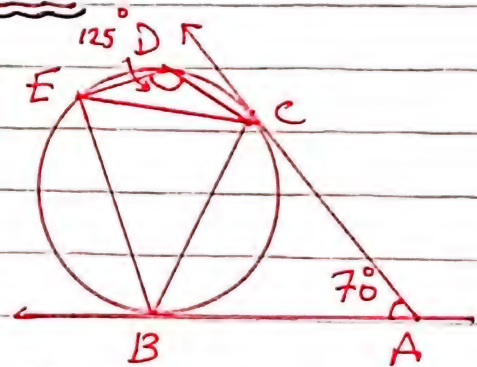 125° D
E
C
70°
B
A